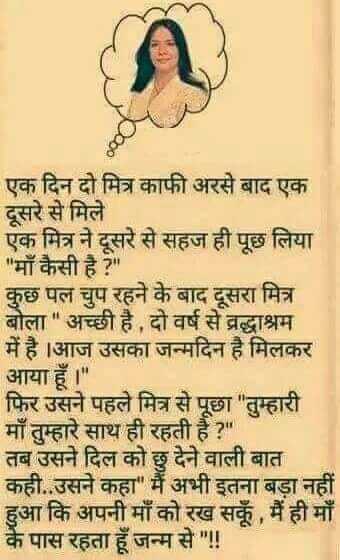 एक दिन दो मित्र काफी अरसे बाद एक
दूसरे से मिले
एक मित्र ने दूसरे से सहज ही पूछ लिया
"माँ कैसी है ?"
कुछ पल चुप रहने के बाद दूसरा मित्र
बोला " अच्छी है , दो वर्ष से व्रद्धाश्रम
में है ।आज उसका जन्मदिन है मिलकर
आया हूँ ।"
फिर उसने पहले मित्र से पूछा "तुम्हारी
माँ तुम्हारे साथ ही रहती है ?"
तब उसने दिल को छु देने वाली बात
कही..उसने कहा" मैं अभी इतना बड़ा नहीं
हुआ कि अपनी माँ को रख सकूँ , मैं ही माँ
के पास रहता हूँ जन्म से "!!